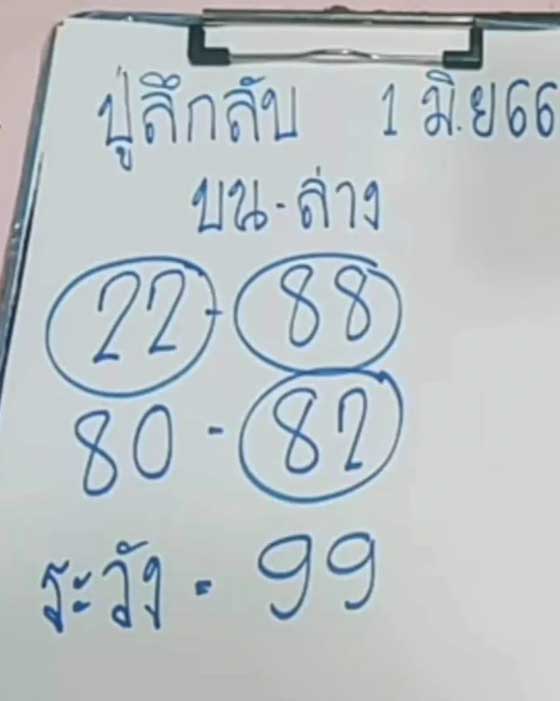 ปู่ลึกลับ 1 มิ.ย66
บน-ล่าง
22-88
80-82
ระวัง-99